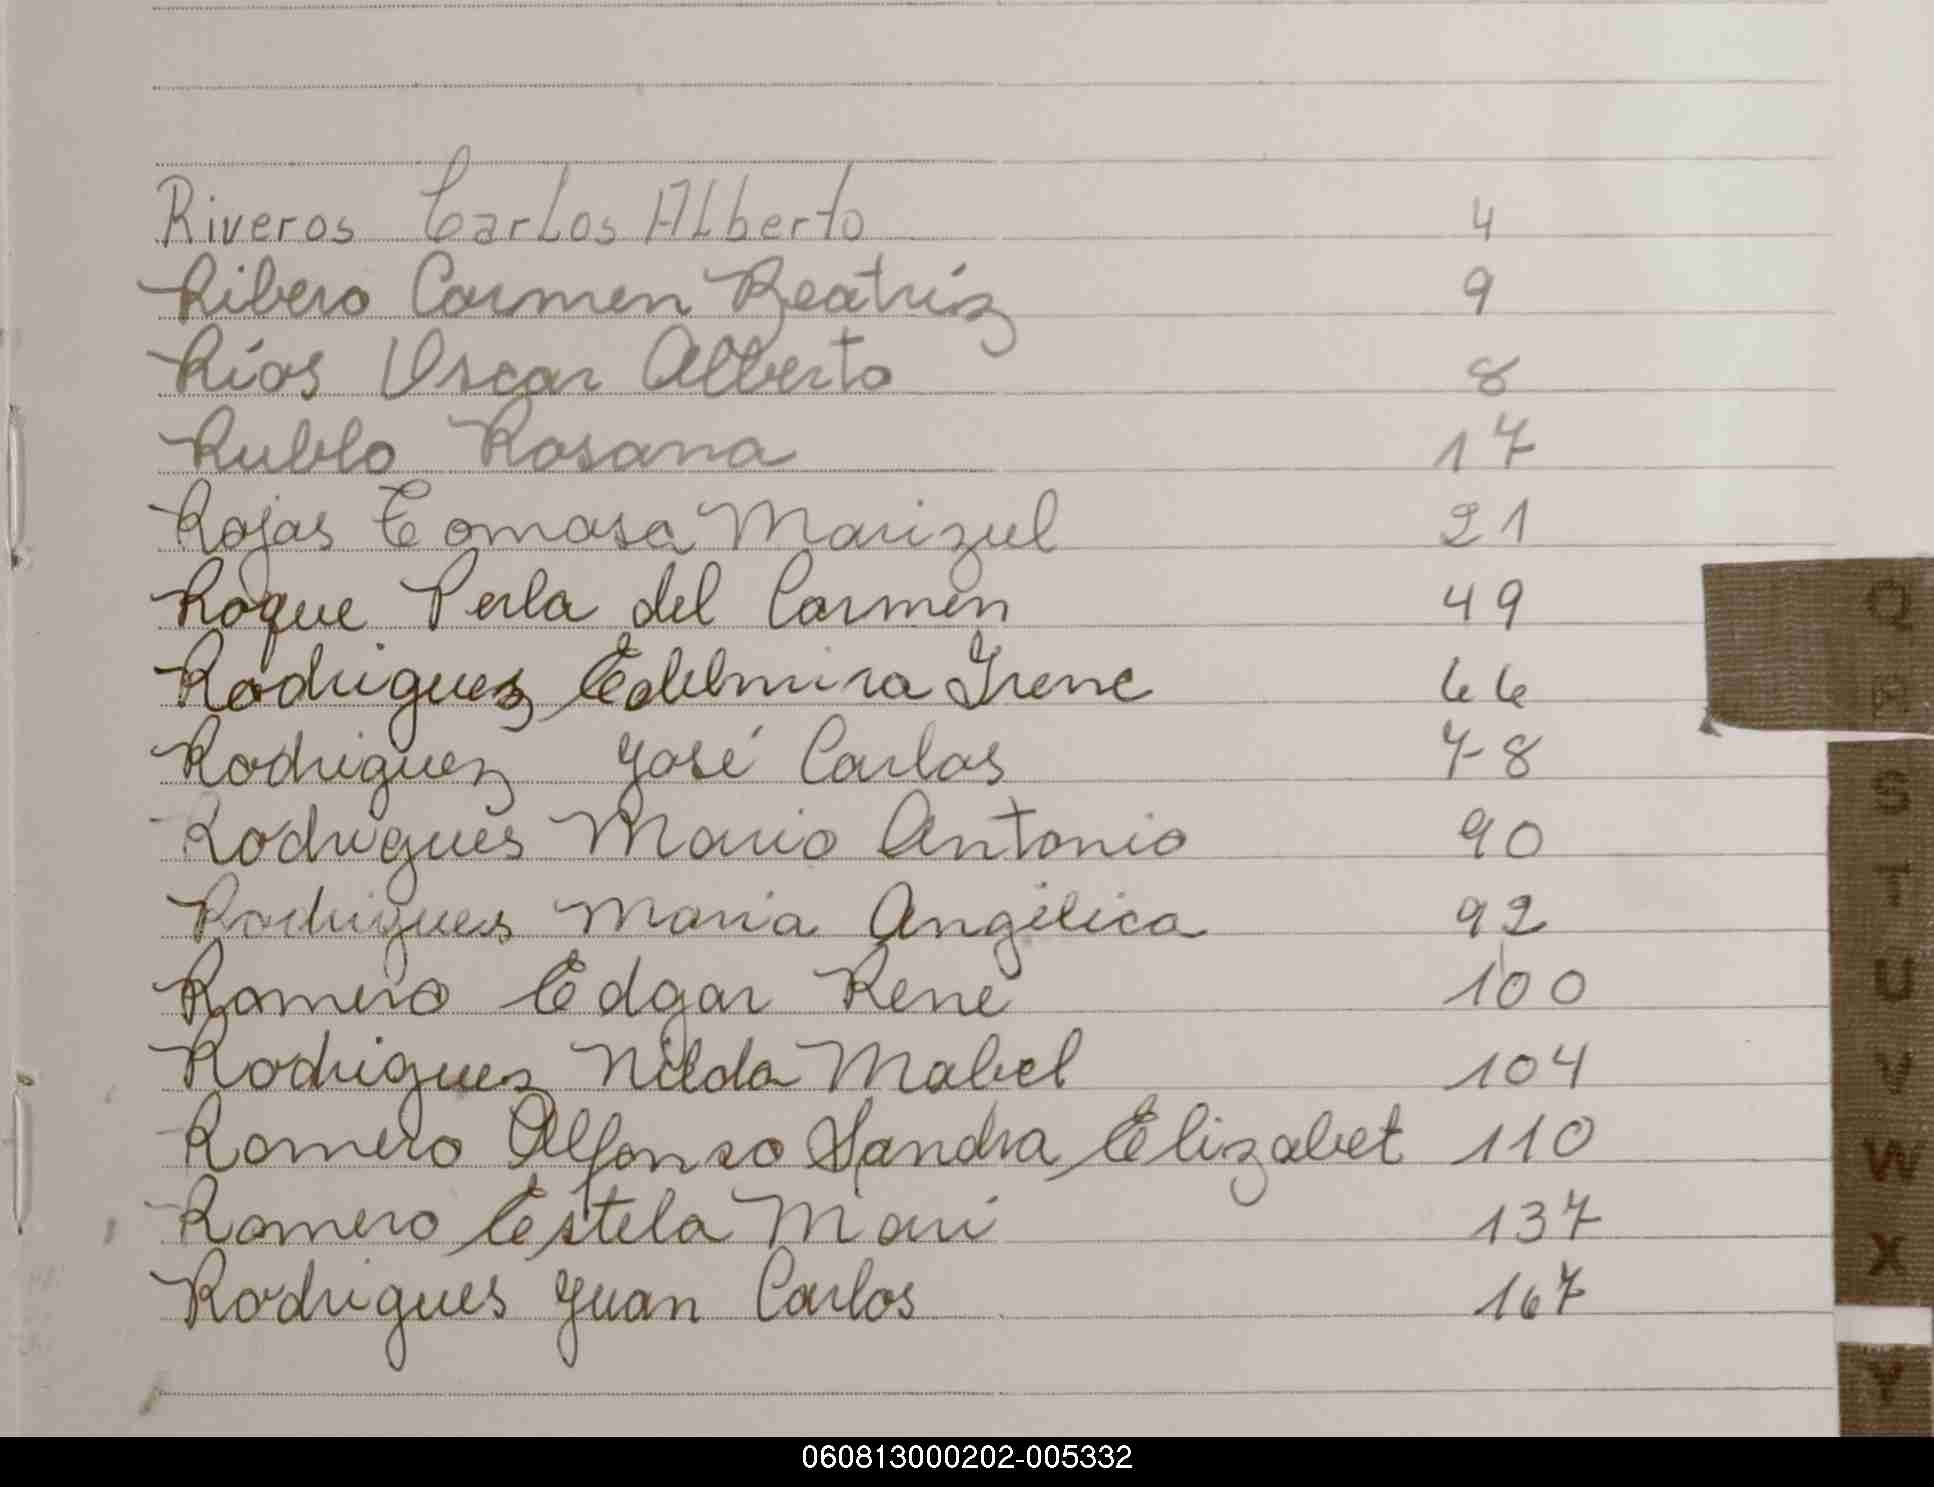 Riveros Carlos Alberto 4
Ribero Carmen Beatriz 9
Ríos Oscar Alberto 8
Rublo Rosana 17
Rojas Tomasa Marizul 21
Roque Perla del Carmen 49
Rodriguez Edelmira Irene 66
Rodriguez José Carlos 78
Rodrigues Mario Antonio 90
Rodrigues Maria Angélica 92
Romero Edgar René 100
Rodriguez Nilda Mabel 104
Romero Alfonso Sandra Elizabet 110
Romero Estela Mari 137
Rodrigues Juan Carlos 167
Q
R
S
T
U
V
W
X
Y
060813000202-005332